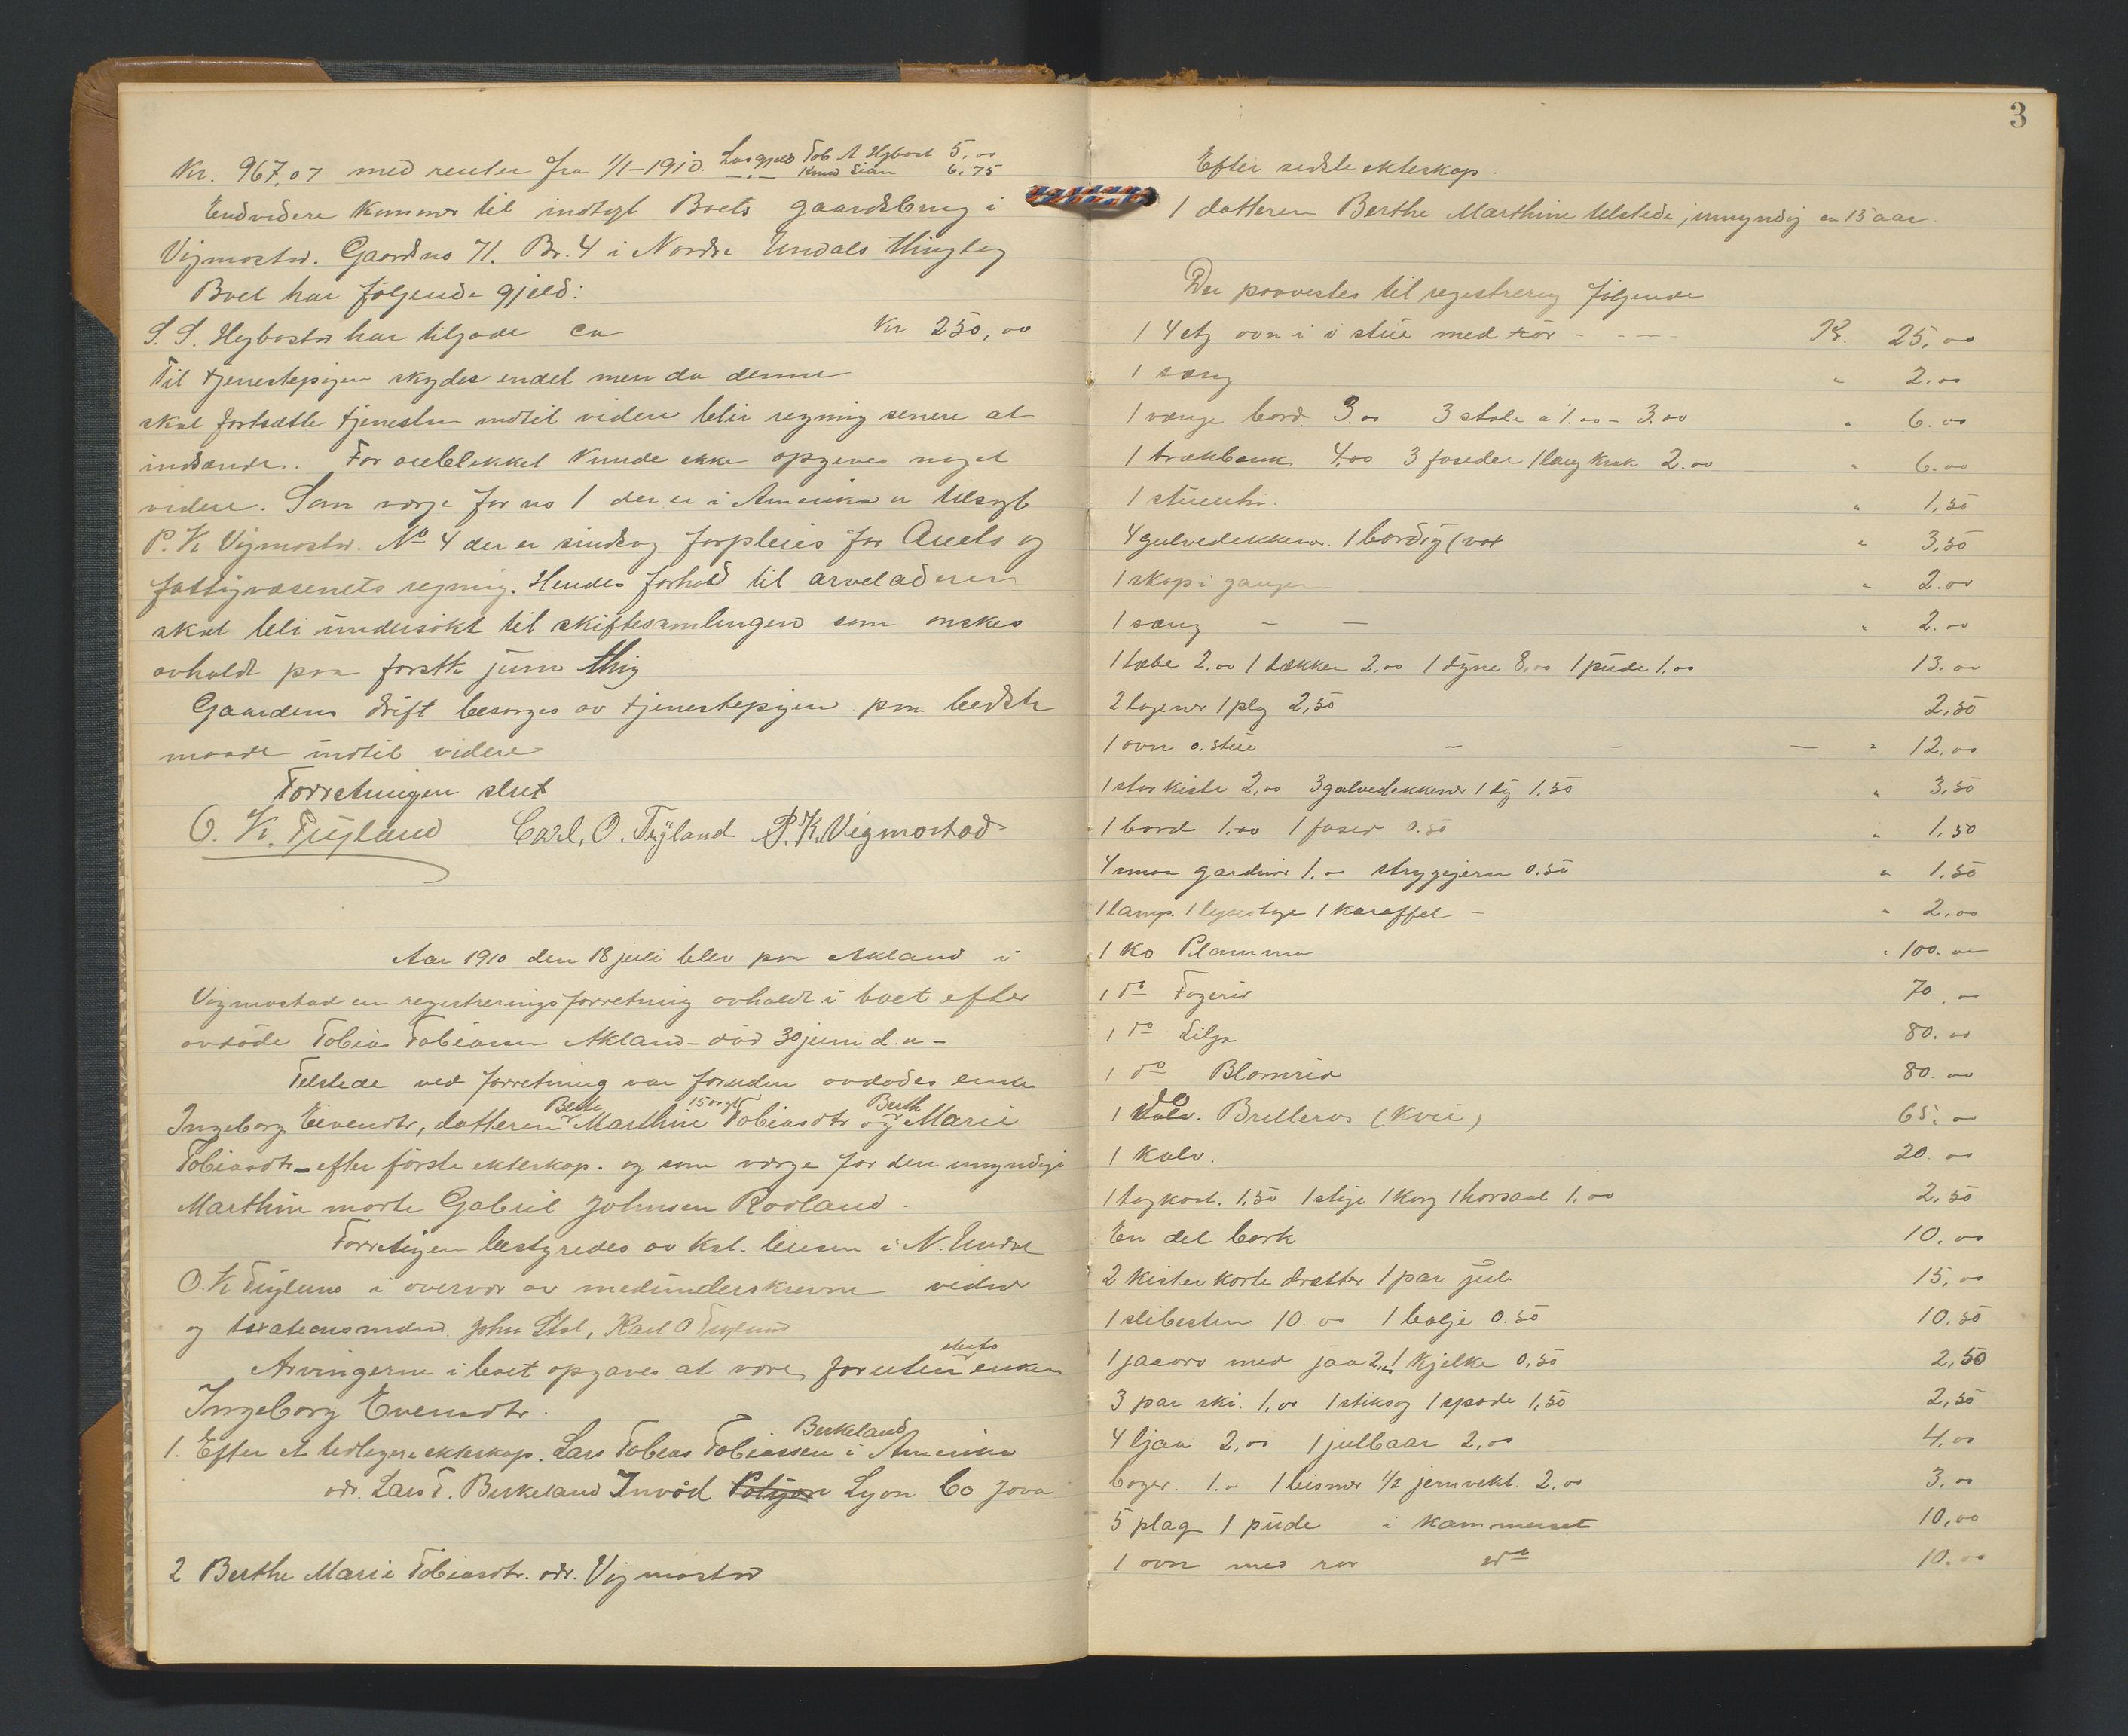 Kr. 967,07 med renter fra 1/1-1910. Løs gjeld Tob A Hgbost 5.00
—„— Knud Eian 6,75
Endvidere kommer til indtægt Boets gaardsbrug i
Vigmostad. Gaardsno 71. Br. 4 i Nordre Undals thinglag
Boet har følgende gjeld:
S. S. Hegbostad har tilgode ca Kr 250,00
Til tjenestepigen skydes endel men da denne
skal fortsætte tjenesten indtil videre blir regning senere at
indsende. For øieblikket kunde ikke opgives noget
videre. Som værge for no 1 der er i Amerika er tilsagt
P. K Vigmostad. No 4 der er sindsyg forpleies for Amts og
fattigvæsenets regning. Hendes forhold til arveladeren
skal bli undersøkt til skiftesamlingen som ønskes
avholdt paa første juni thing
Gaardens drift besørges av tjenestepigen paa bedste
maade indtil videre
Forretningen slut
O. K. Trygland Carl. O. Trÿland P. K. Vegmostad
Aar 1910 den 18 juli blev paa Akland i
Vigmostad en registreringsforretning avholdt i boet efter
avdøde Tobias Tobiassen Akland - død 30 juni d. a -
Tilstede ved forretning var foruden avdødes enke
Berte 15 aar gl Berth
Ingeborg Eivendtr, datteren Marthine Tobiasdtr og Marie
Tobiasdtr - efter første ekteskap. og som værge for den umyndige
Marthine møtte Gabriel Johnsen Rooland.
Forretningen bestyredes av Kst. lensm i N. Undal
O. K Trygland i overvær av medunderskrevne vidner
og taxationsmænd. John Stal, Karl O Trygland
Arvingerne i boet opgaves at være, foruten enken
Ingeborg Evensdtr.
Berkeland
1. Efter et tidligere ekteskap. Lars Tobias Tobiassen i Amerika
adr. Lars T. Berkeland Invød Lyon Co Jova
2 Berthe Marie Tobiasdtr. adr. Vigmostad
3
Efter sidste ekteskap.
1 datteren Berthe Marthine tilstede, umyndig ca 15 aar.
Der paavestes til registrering følgende
1 4 etg ovn i v stue med rør - - — Kr. 25,00
1 sæng " 2.00
1 vænge bord. 3.00 3 stole a 1.00 - 3.00 " 6.00
1 trækbænk 4,00 3 foseder 1 lang krak 2.00 " 6.00
1 stueuhr. " 1,50
4 gulvedekkener. 1 bordtøy (vox " 3,50
1 skap i gangen " 2.00
1 sæng — — " 2.00
1 tæbe 2.00 1 tækken 2,00 1 dyne 8,00 1 pude 1,00 13.00
2 lagener 1 plag 2,50 2,50
1 ovn ø. stue — - — " 12,00
1 stor kiste 2,00 3 gulvedekkener 1 tøj 1.50 " 3,50
1 bord 1.00 1 foser 0.50 " 1,50
4 smaa gardiner 1.- strygejern 0.50 " 1.50
1 lamp. 1 lysestage 1 karaffel — " 2,00
1 Ko Plamma " 100.00
1 do Fagerid 70.00
1 do Lilja 80.00
1 do Blomrid 80.00
1 do. Brilleros (kvie) 65.00
1 Kalv. 20.00
1 tøykost. 1,50 1 stige 1 korg 1 horsaal 1.00 2,50
En del bork 10.00
2 kister korte drætter 1 par jul 15,00
1 slibesten 10.00 1 balje 0.50 10,50
1 jaaorv med jaa 2,00 1 kjelke 0,50 2,50
3 par ski. 1,00 1 stiksag 1 spade 1,50 2,50
4 ljaa 2,00 1 julbaar 2,00 4,00
bøger. 1.- 1 bismer 1/2 jernvekt. 2.00 3.00
5 plag 1 pude i kammerset 10,00
1 ovn med rør do 10.00